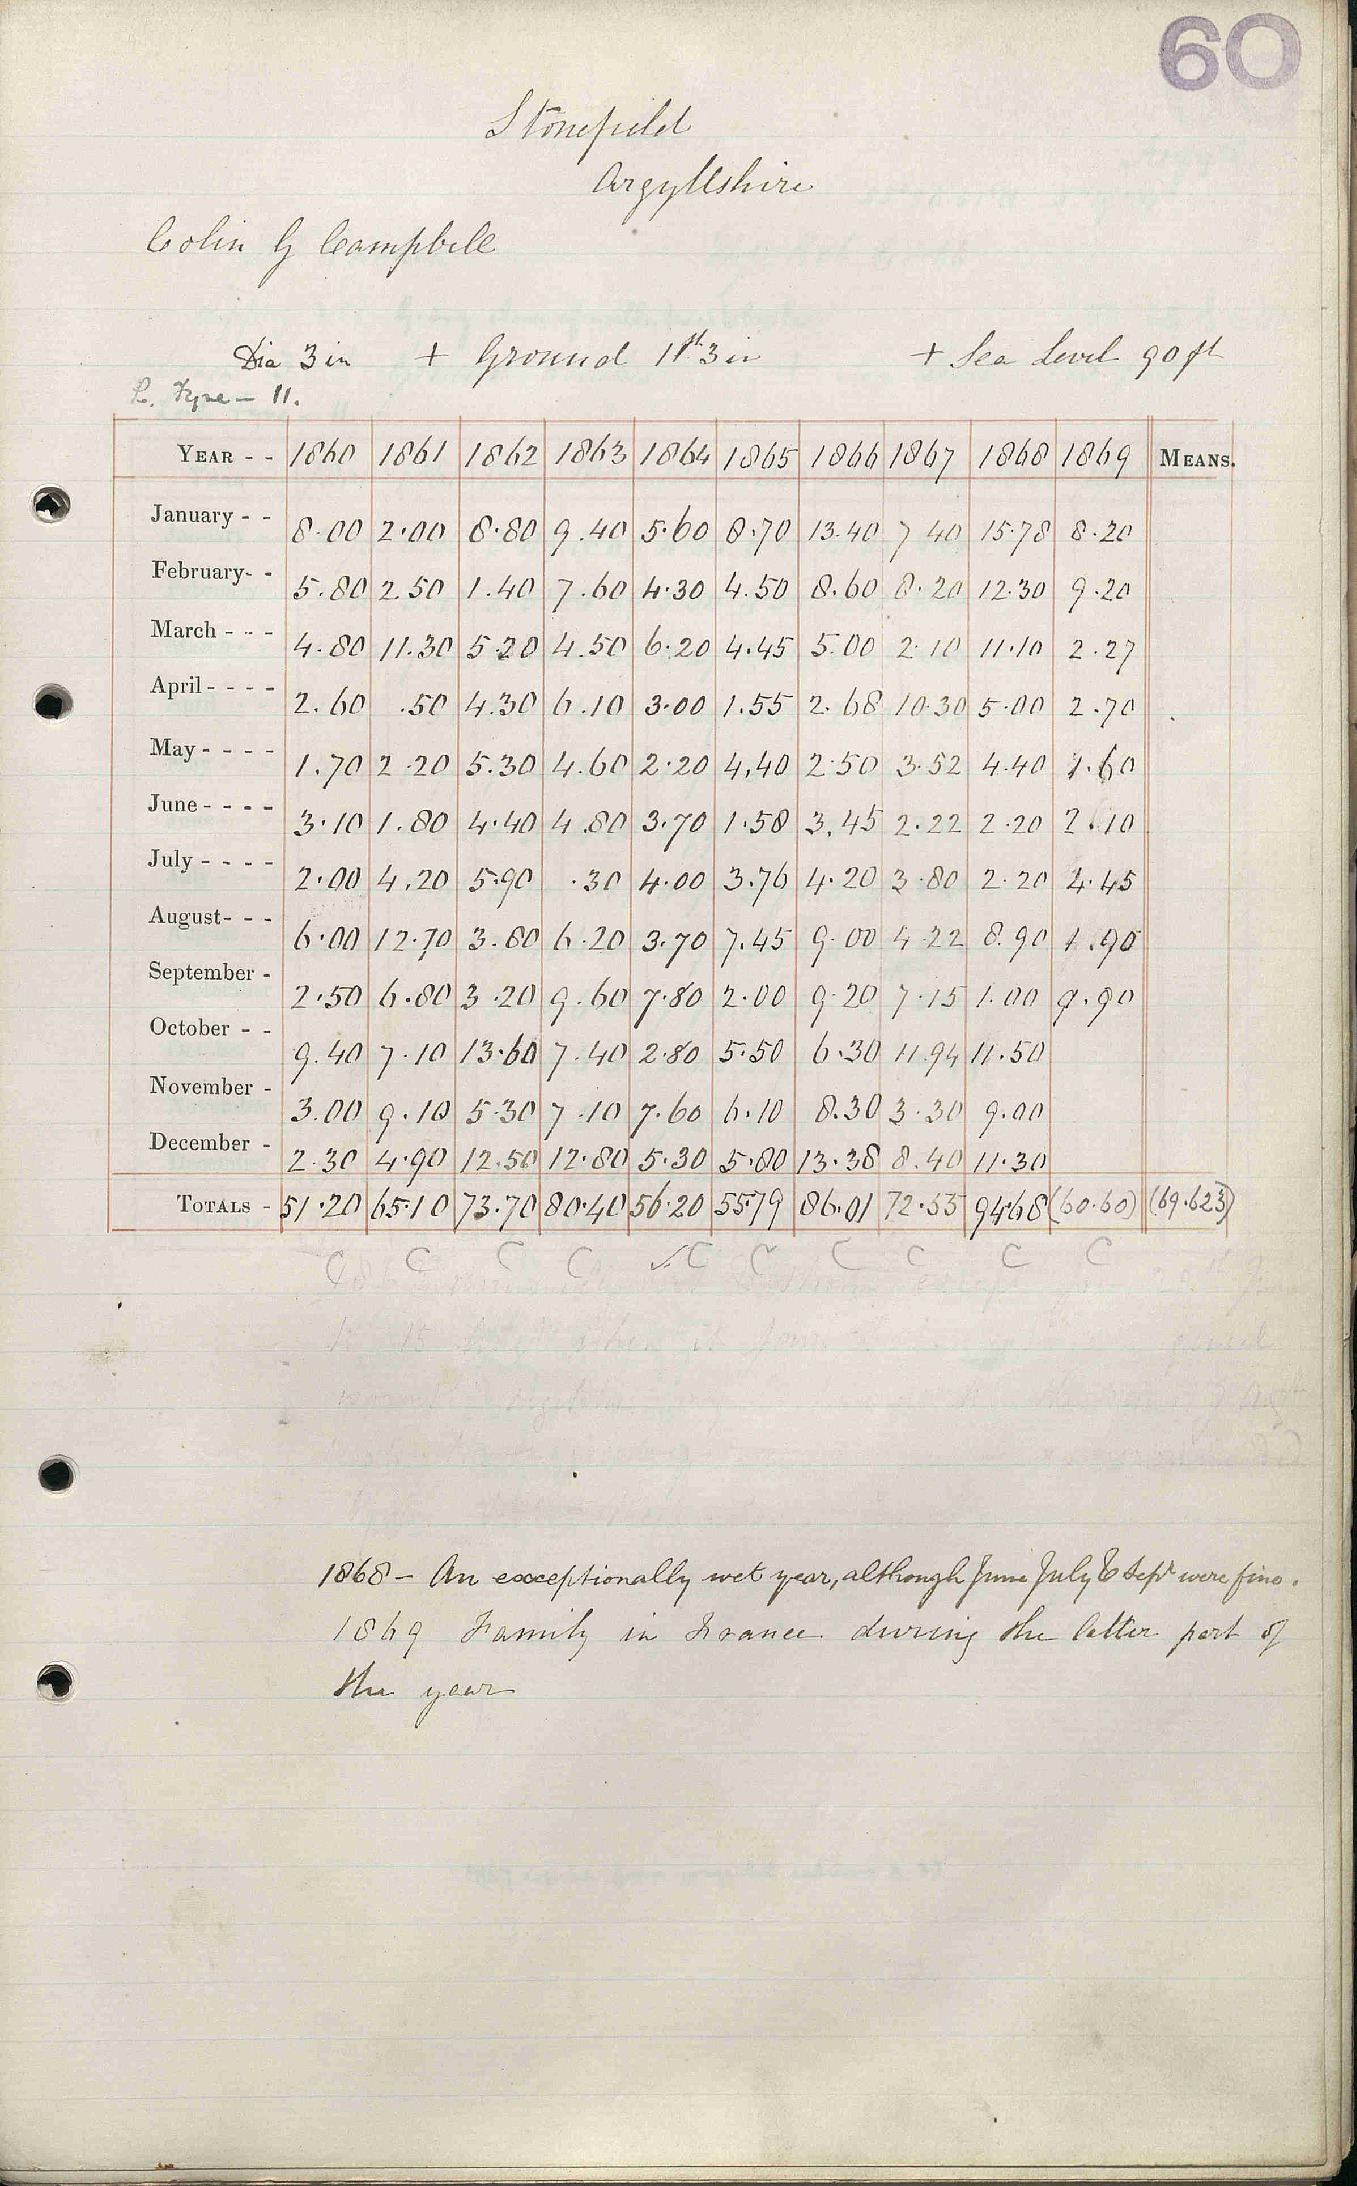 60
Stonefield
Argyllshire
Colin G Campbell
Dia 3 in + Ground 1 ft 3 in + Sea Level 90 ft
L. Fyne - 11.
YEAR - - 1860 1861 1862 1863 1864 1865 1866 1867 1868 1869 MEANS.
January - - 8.00 2.00 8.80 9.40 5.60 8.70 13.40 7 40 15.78 8.20
February- - 5.80 2.50 1.40 7.60 4.30 4.50 8.60 8.20 12.30 9.20
March - - - 4.80 11.30 5.20 4.50 6.20 4.45 5.00 2.10 11.10 2.27
April - - - - 2.60 .50 4.30 6.10 3.00 1.55 2.68 10.30 5.00 2.70
May - - - - 1.70 2.20 5.30 4.60 2.20 4.40 2.50 3.52 4.40 1.60
June - - - - 3.10 1.80 4.40 4.80 3.70 1.58 3.45 2.22 2.20 2.10
July - - - - 2.00 4.20 5.90 .30 4.00 3.76 4.20 3.80 2.20 4.45
August- - - 6.00 12.70 3.80 6.20 3.70 7.45 9.00 4.22 8.90 1.90
September - 2.50 6.80 3.20 9.60 7.80 2.00 9.20 7.15 1.00 9.90
October - - 9.40 7.10 13.60 7.40 2.80 5.50 6.30 11.94 11.50
November - 3.00 9.10 5.30 7.10 7.60 6.10 8.30 3.30 9.00
December - 2.30 4.90 12.50 12.80 5.30 5.80 13.38 8.40 11.30
TOTALS - 51.20 65.10 73.70 80.40 56.20 55.79 86.01 72.55 94.68 (60.60) (69.623)
C C C C ✓C C C C C C
1868 - An exceptionally wet year, although June July & Sept were fine.
1869 Family in France during the latter part of
the year